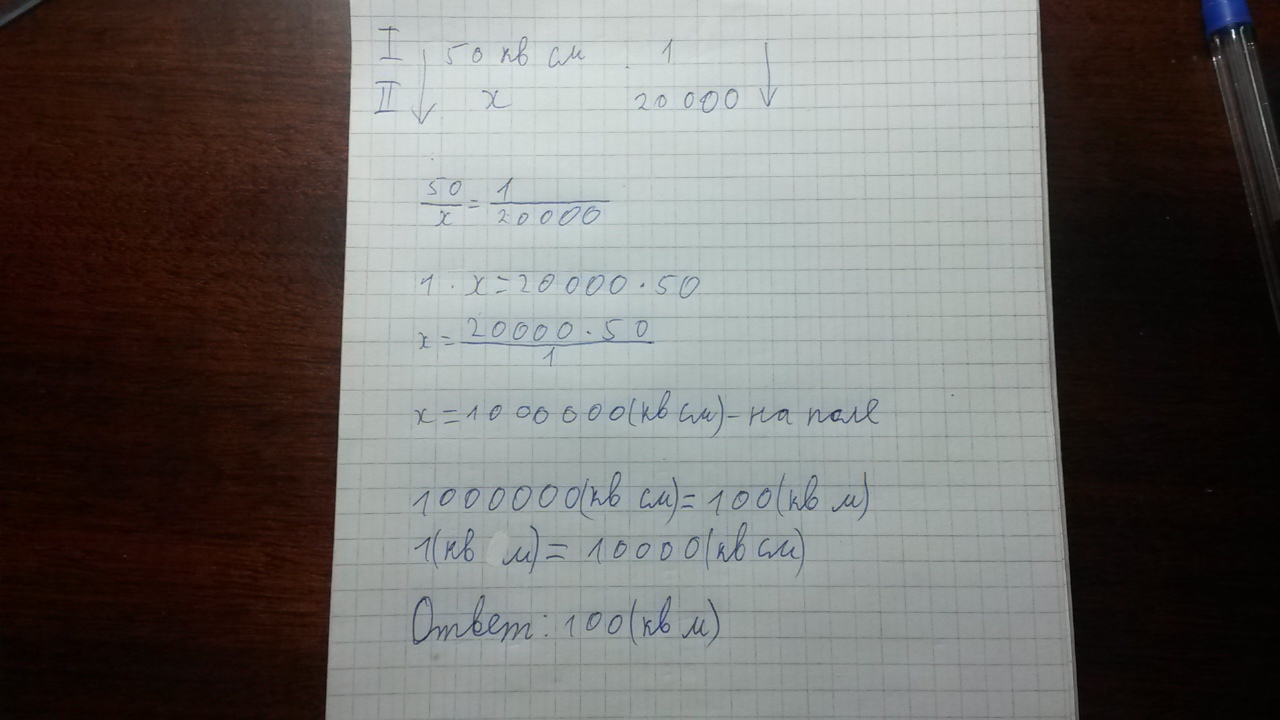 I 50 кв см 1
II x 20 000
50/x = 1/20000
1 · x = 20000 · 50
x = 20000 · 50/1
x = 1000000(кв см) - на поле
1000000(кв см) = 100(кв м)
1(кв м) = 10000(кв см)
Ответ: 100(кв м)